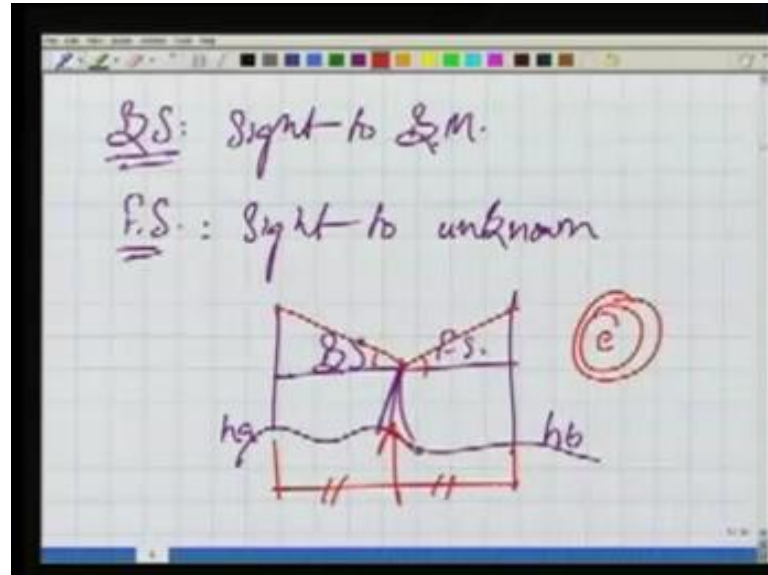 BS: Sight to B.M.
F.S.: Sight to unknown
BS
F.S.
e
ha
hb